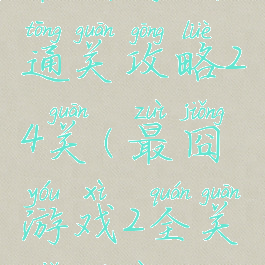 tōng guān gōng lüè
通关攻略2
guān zuì jiǒng
4关(最囧
yóu xì quán guān
游戏2全关